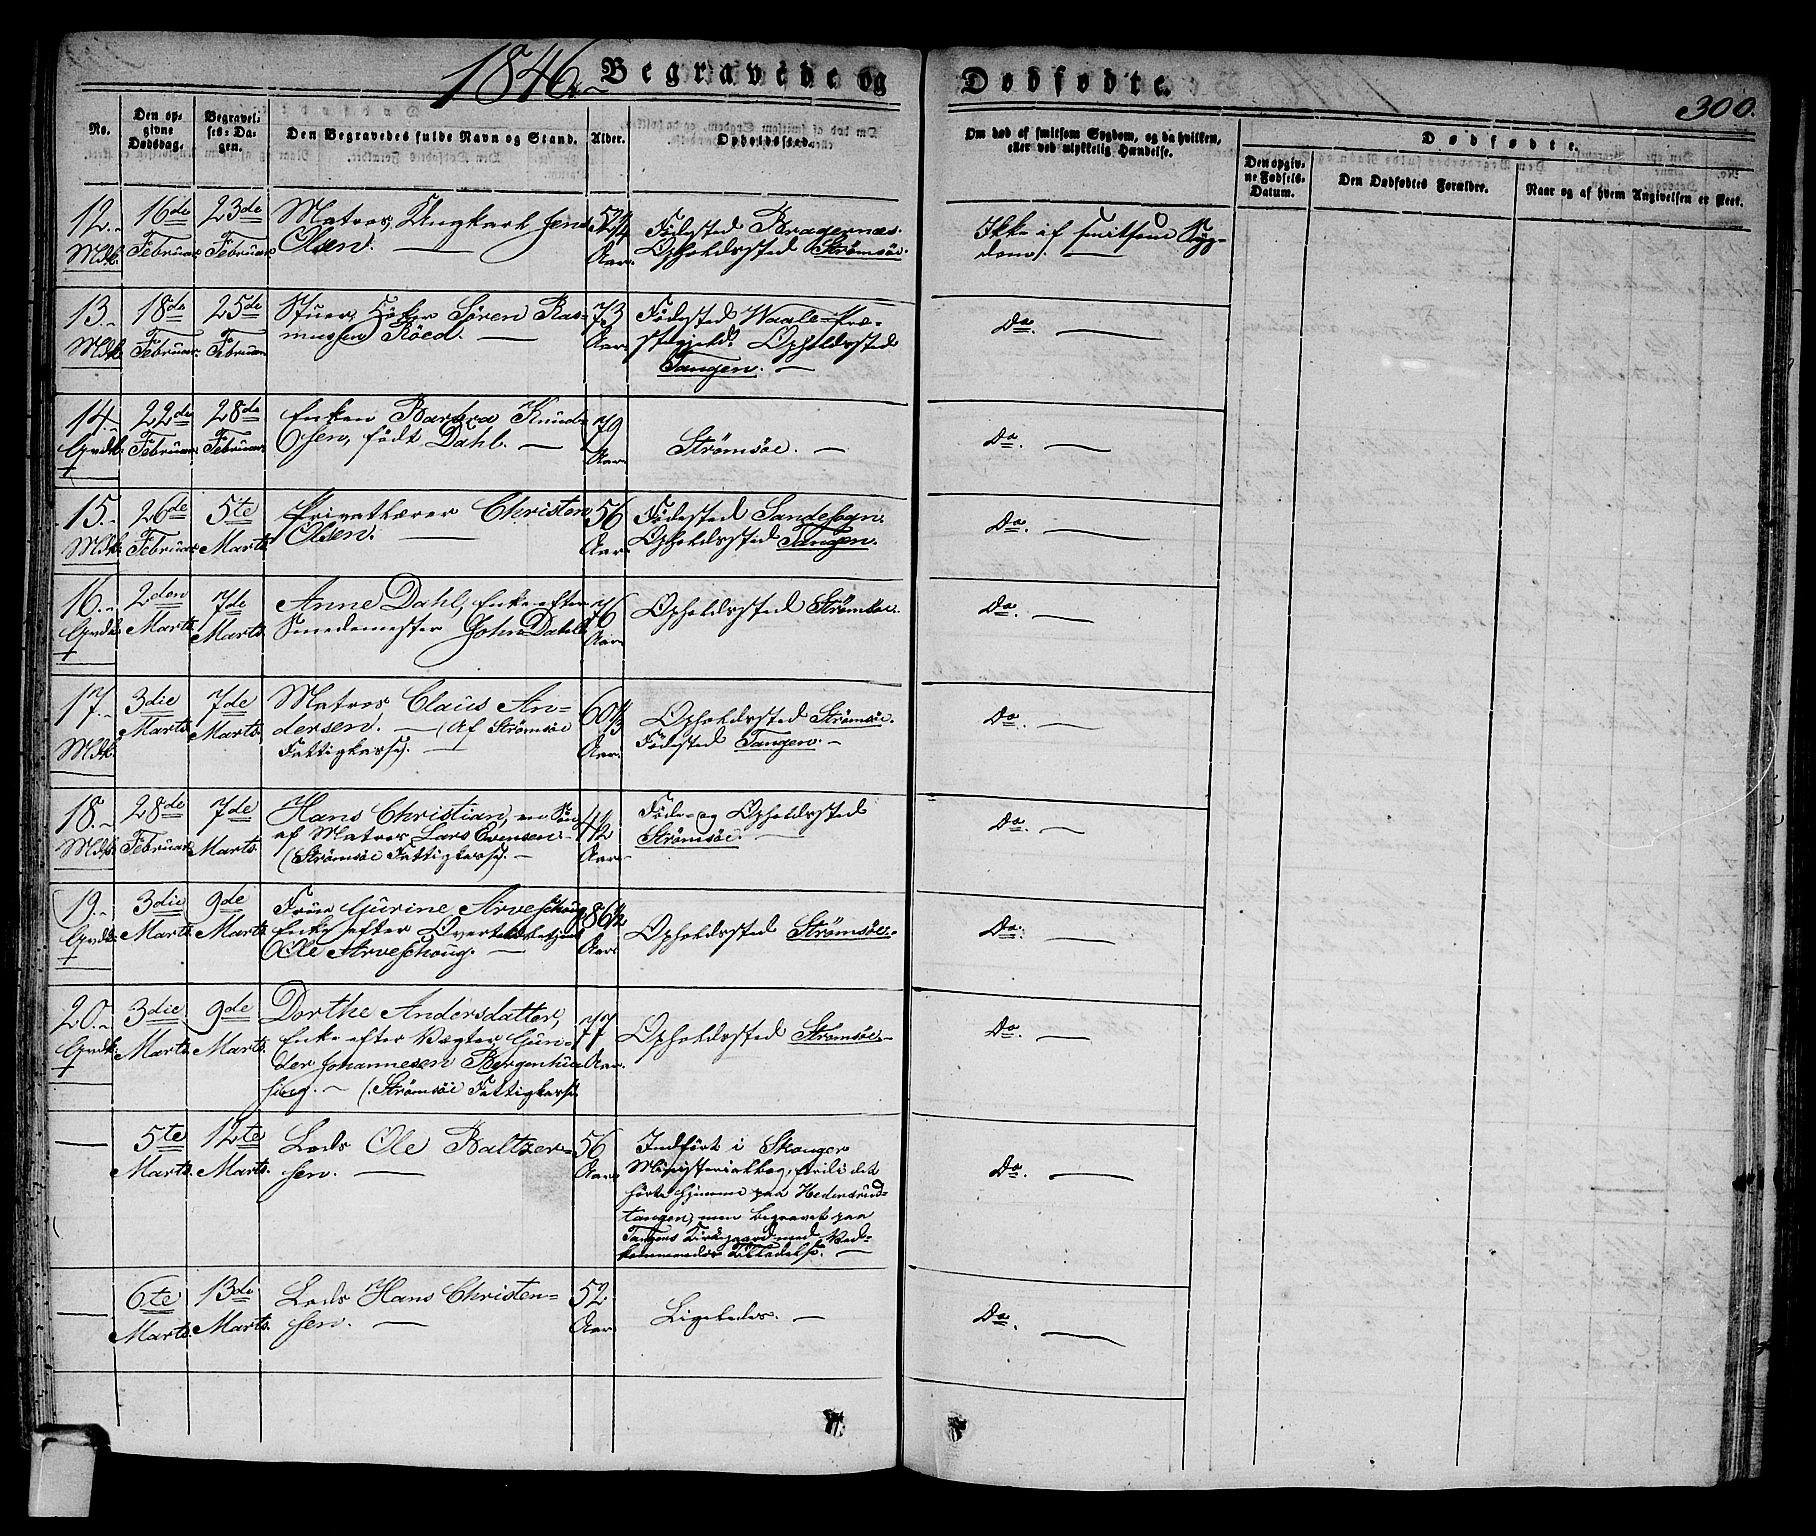 1846. Begravede og Dødfødte. 300.
No.
Den op-
givne
Dødsdag.
Begravel-
ses-Da-
gen.
Den Begravedes fulde Navn og Stand.
Alder.
Opholdssted.
Om død af smitsom Sygdom, og da hvilken,
eller ved ulykkelig Hændelse.
Dødfødte.
Den opgiv-
ne Fødsels-
Datum.
Den Dødfødtes Forældre.
Naar og af hvem Angivelsen er skeet.
12.
Mdk.
16de
Februar.
23de
Februar.
Matros, Ungkarl Jens
Olsen. —
Aar.
Fødested Bragernæs.
Opholdssted Strømsøe.
Ikke af smitsom Syg-
dom. —
13.
Mdk.
18de
Februar.
25de
Februar.
Stuer, Søren Ras-
mussen Röed. —
73
Aar.
Fødested Waale-Præ-
stegjeld. Opholdssted
Tangen. —
Do. —
14.
Qvdk.
22de
Februar.
28de
Februar.
Enken Barbra Knud-
sen, født Dahl. —
79
Aar.
Strømsöe. —
Do. —
15.
Mdk.
26de
Februar.
5te
Marts.
Privatlærer Christen
Olsen. —
56
Aar.
Fødested Sandesogn.
Opholdssted Tangen.
Do. —
16.
Qvdk.
2den
Marts.
7de
Marts.
Anne Dahl, Enke efter
Smedemester John Dahl.
76
Aar.
Opholdssted Strømsöe.
Do. —
17.
Mdk.
3die
Marts.
7de
Marts.
Matros Claus An-
dersen. — (Af Strømsöe
Fattigkasse).
Aar.
Opholdssted Strømsöe.
Fødested Tangen. —
Do. —
18.
Mdk.
28de
Februar.
7de
Marts.
Hans Christian, en Søn
af Matros Lars Evensen.
(Strømsöe Fattigkasse). —
Aar.
Føde- og Opholdssted
Strømsöe. —
Do. —
19.
Qvdk.
3die
Marts.
9de
Marts.
Frue Gurine Arveschoug
Enke efter
Ole Arveschoug. —
86½
Aar.
Opholdssted Strømsöe.
Do. —
20.
Qvdk.
3die
Marts.
9de
Marts.
Dorthe Andersdatter,
Enke efter Vægter Gun-
der Johannesen Bergenhu-
— (Strømsöe Fattigkasse.
77
Aar.
Opholdssted Strømsöe. —
Do. —
—
5te
Marts.
12te
Marts.
Lods Ole Baltzer-
sen. —
56
Aar.
Indført i Skouger
Ministerialbog, fordi det
hørte hjemme paa Hedensrud-
tangen, men begravet paa
Tangens Kirkegaard med Ved-
kommendes Tilladelse. —
Do. —
—
6te
Marts.
13de
Marts.
Lods Hans Christen-
sen. —
52
Aar.
Ligeledes. —
Do. —